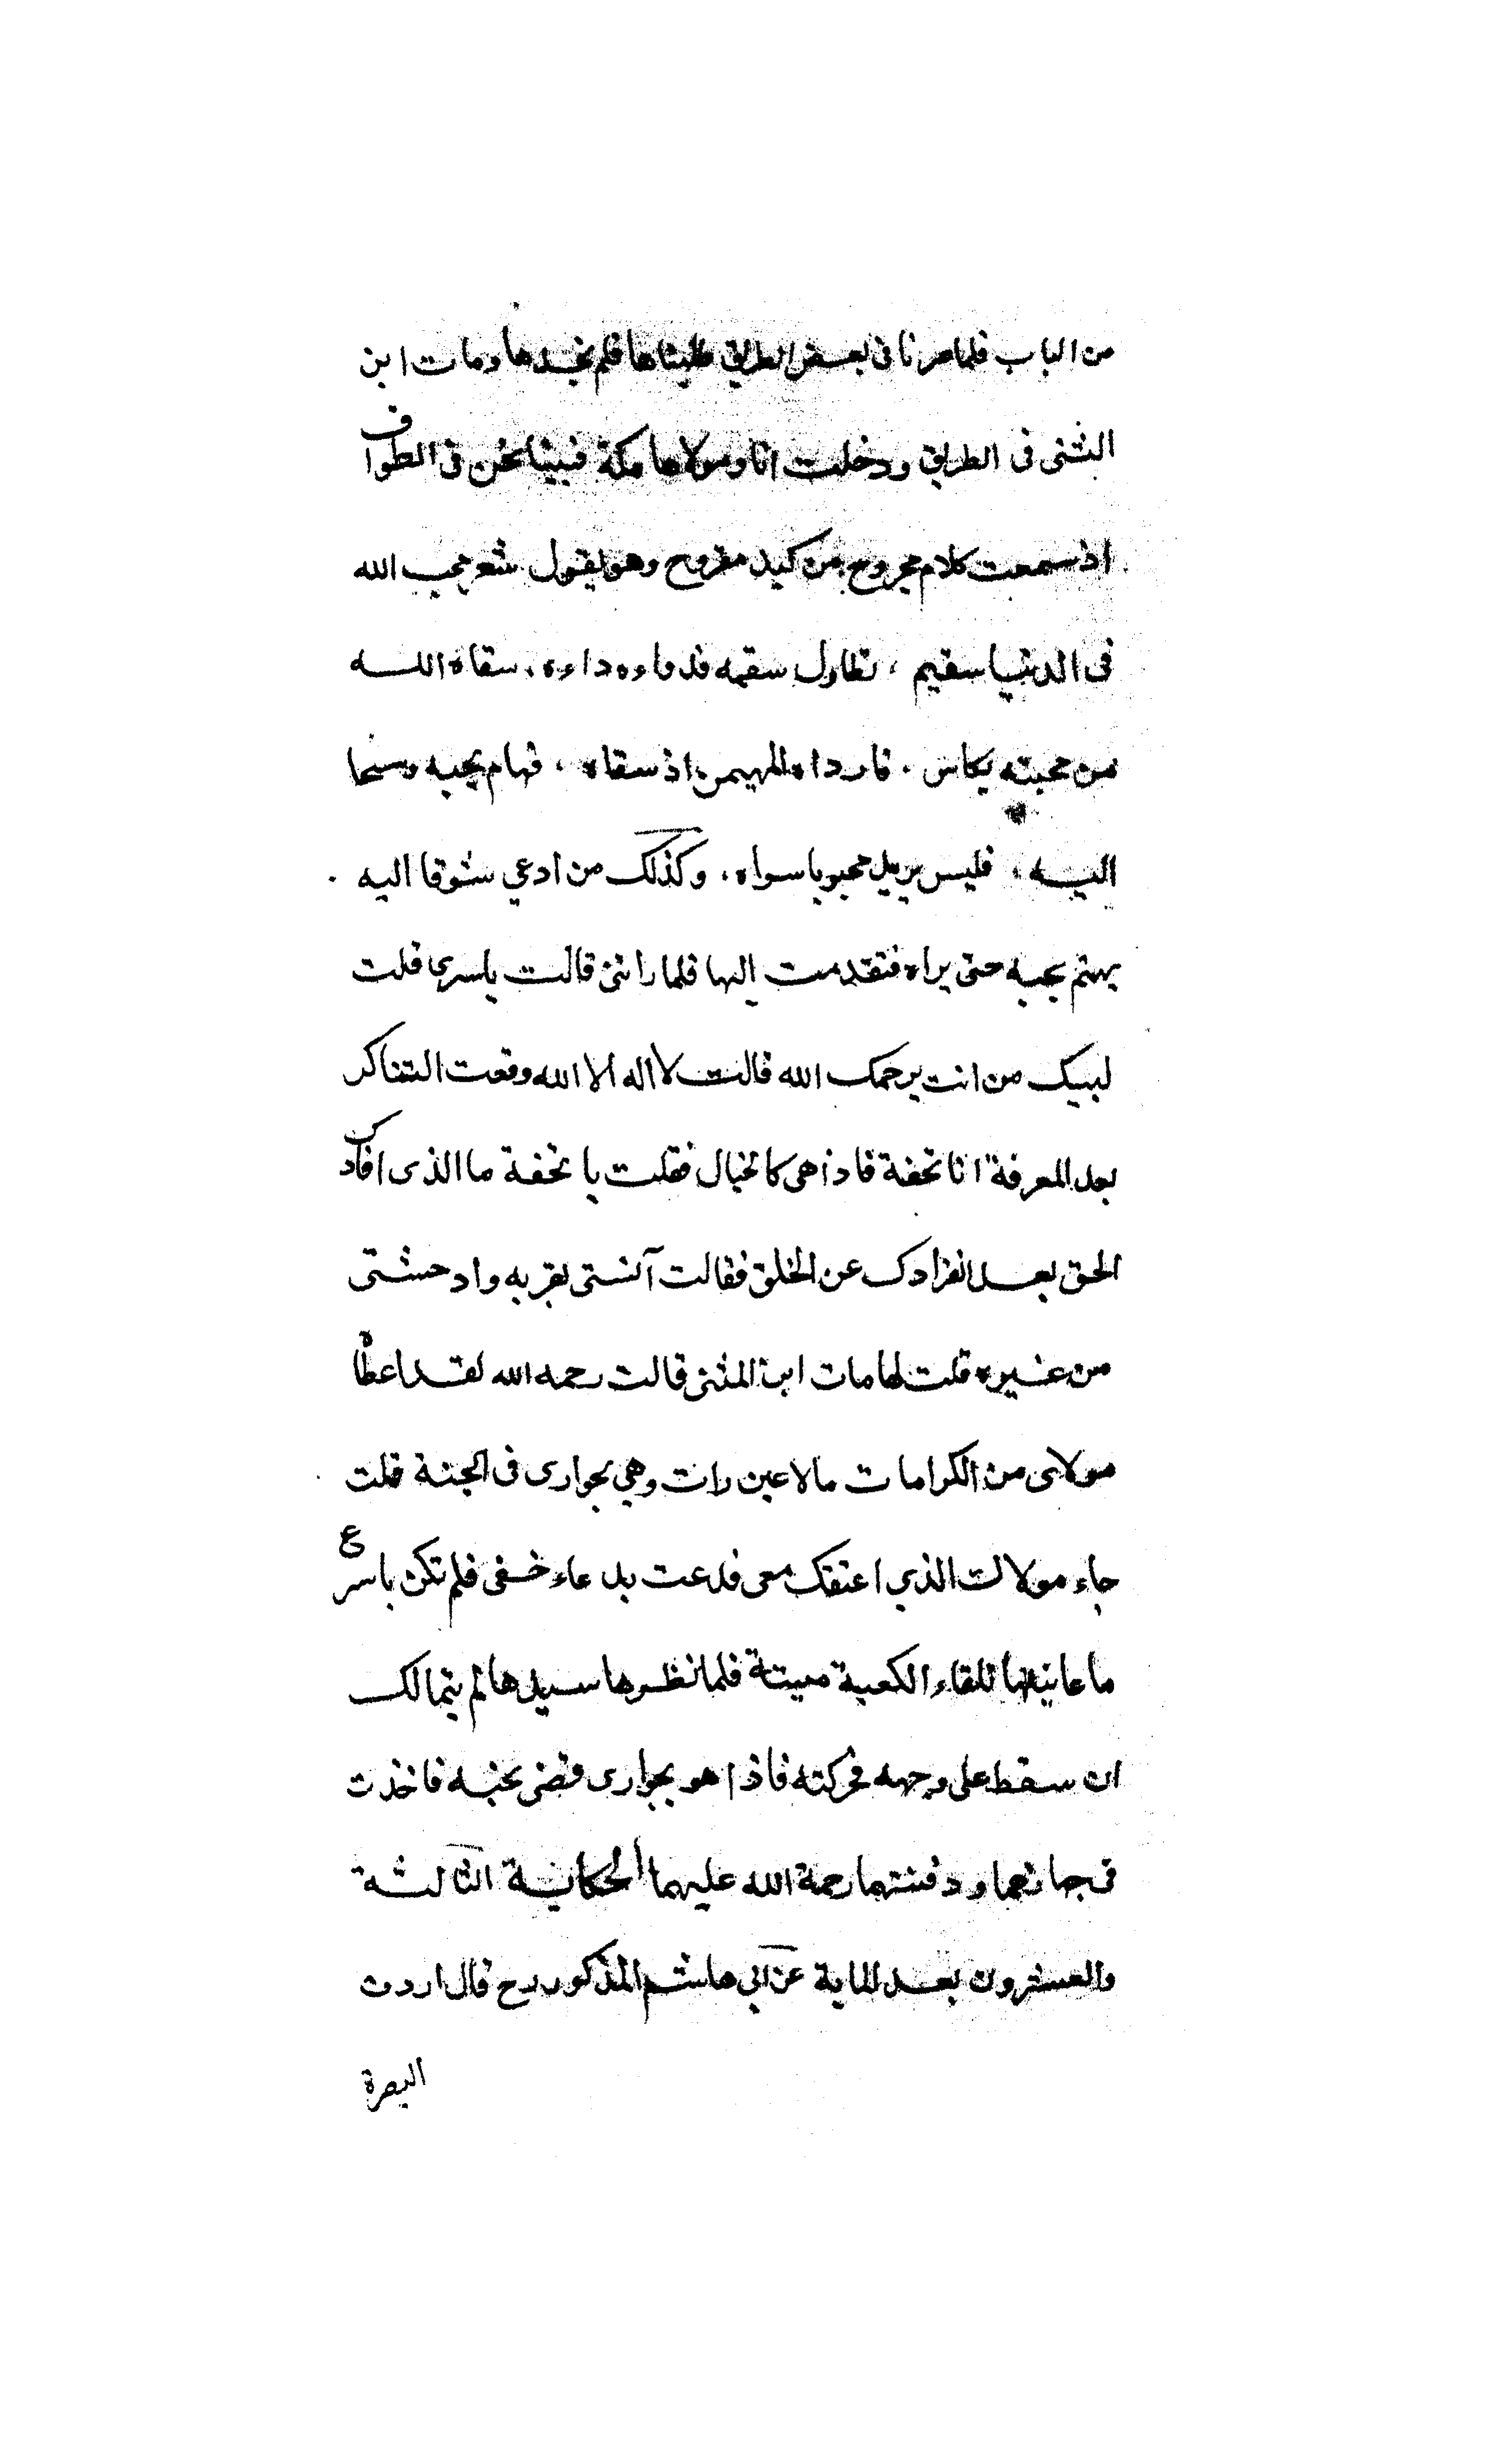 من الباب فلما صرنا فى بعض الطريق طلبناها فلم نجدها ومات ابن
المثنى فى الطريق ودخلت انا ومولاها مكة فبينا نحن فى الطواف
اذ سمعت كلام مجروح من كبد مقروح وهو يقول شعر محب الله
فى الدنيا سقيم ، تطاول سقمه فدواءه داءه ، سقاه الله
من محبته بكاس ، فارواه المهيمن اذ سقاه ، فهام بحبه وسما
اليه ، فليس يريد محبوبا سواه ، وكذلك من ادعي شوقا اليه
يهيم بحبه حتى يراه فتقدمت إليها فلما راتنى قالت ياسرى قلت
لبيك من انت يرحمك الله قالت لا اله الا الله وقعت التناكر
بعد المعرفة انا تحفة فاذا هى كالخيال فقلت يا تحفة ما الذى افادك
الحق بعد انفرادك عن الخلق فقالت آنستى بقربه واوحشتى
من غيره قلت لها مات ابن المثنى قالت رحمه الله لقد اعطاه
مولاى من الكرامات ما لا عين رات وهي بجوارى فى الجنة قلت
جاء مولاك الذي اعتقك معى فدعت بدعاء خفى فلم تكن باسرع
ما عاينها تلقاء الكعبة ميتة فلما نظرها سيدها لم يتمالك
ان سقط على وجهه فحركته فاذا هو بجوارى قضى نحبه فاخذت
فى جهازهما ودفنتهما رحمة الله عليهما الحكاية الثالثة
والعشرون بعد الماية عن ابي هاشم المذكور رح قال اردت
البصرة